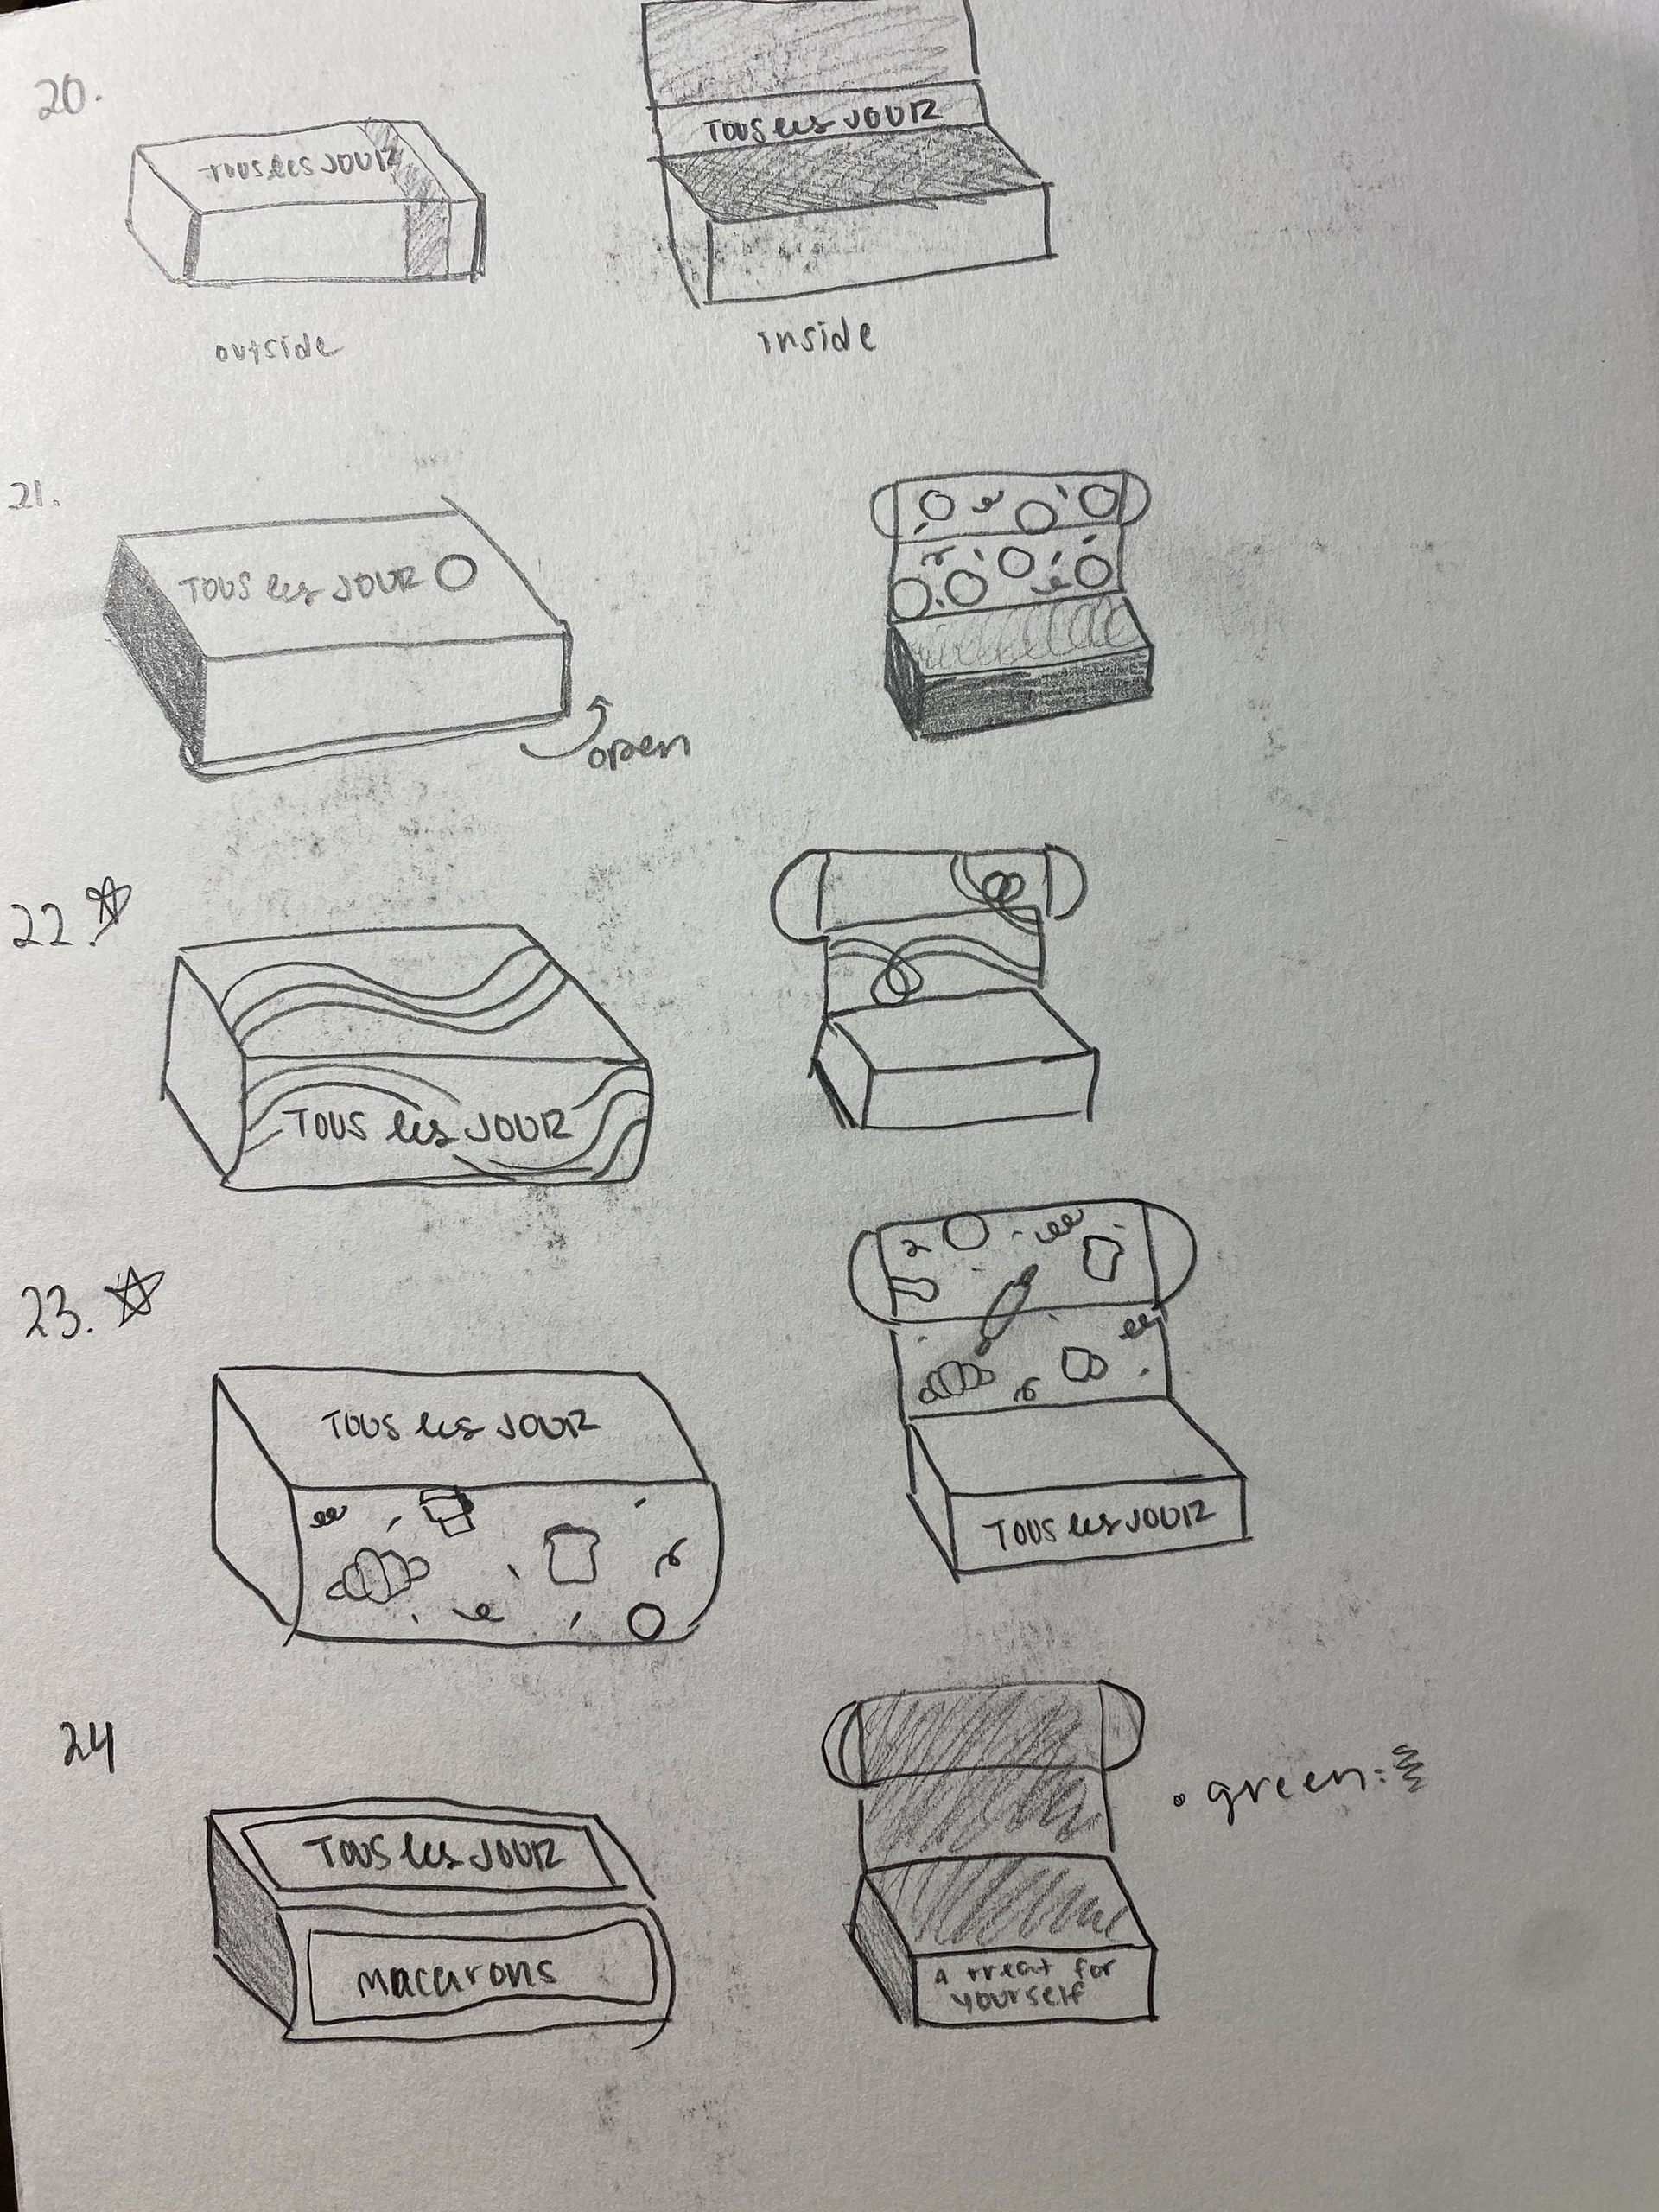 20.
TOUS les JOUR
TOUS les JOUR
outside
inside
21.
TOUS les JOUR
open
22.
TOUS les JOUR
23.
TOUS les JOUR
TOUS les JOUR
24
TOUS les JOUR
macarons
• green:
A treat for
yourself